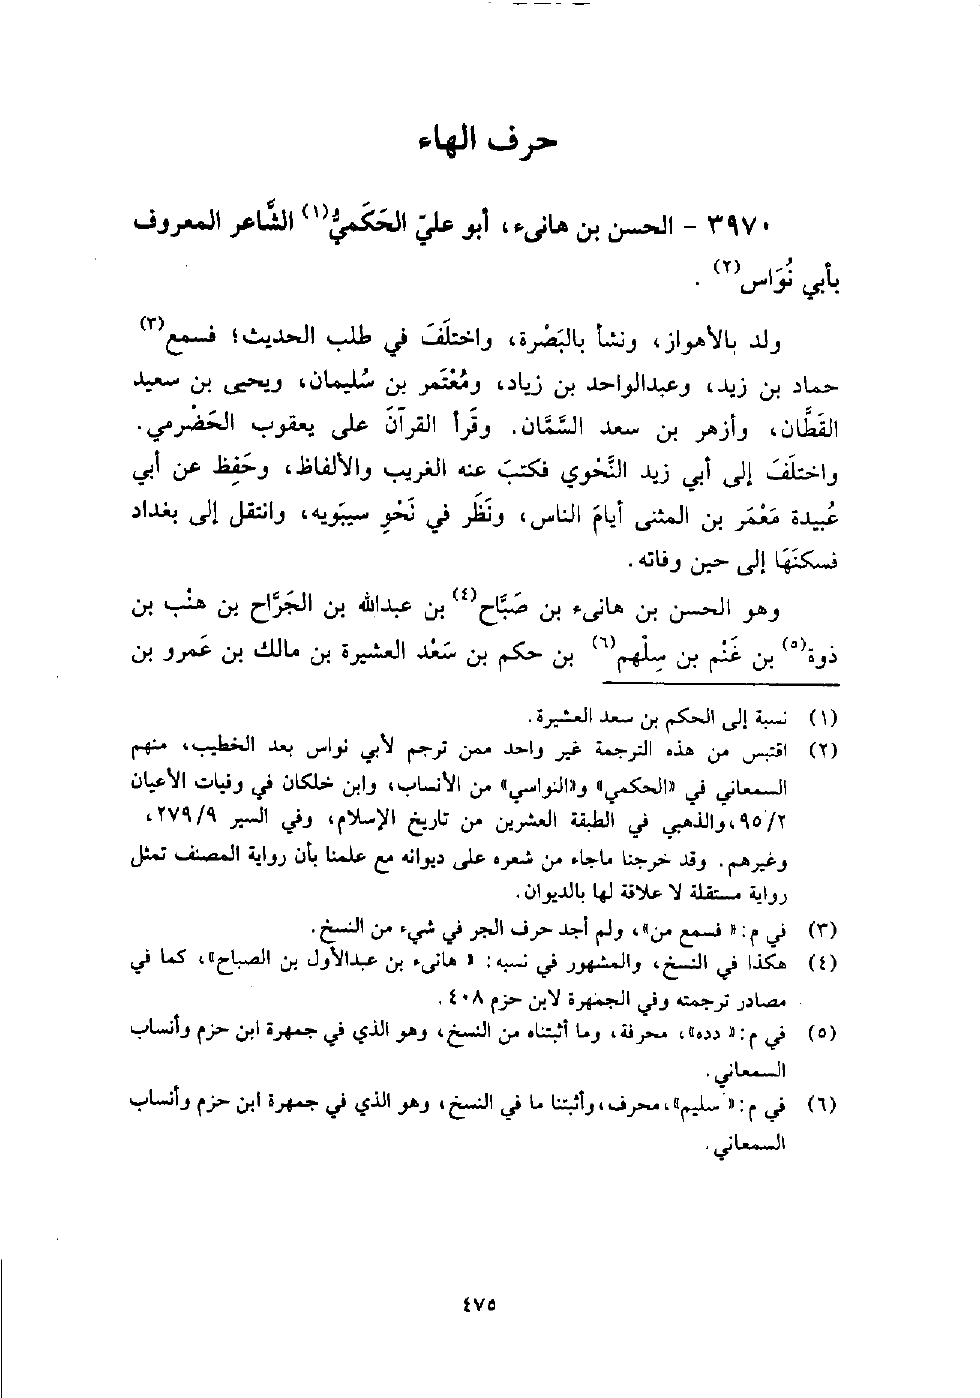 حرف الهاء
٣٩٧٠ - الحسن بن هانىء، أبو عليّ الحَكَميُّ(١) الشَّاعر المعروف
بأبي نُوَاس(٢) .
ولد بالأهواز، ونشأ بالبَصْرة، واختلَفَ في طلب الحديث؛ فسمع(٣)
حماد بن زيد، وعبدالواحد بن زياد، ومُعْتَمر بن سُليمان، ويحيى بن سعيد
القَطَّان، وأزهر بن سعد السَّمَّان. وقَرأ القرآنَ على يعقوب الحَضْرمي.
واختلَفَ إلى أبي زيد النَّحْوي فكتبَ عنه الغريب والألفاظ، وحَفِظ عن أبي
عُبيدة مَعْمَر بن المثنى أيامَ الناس، ونَظَر في نَحْوِ سيبَويه، وانتقل إلى بغداد
فسكنَهَا إلى حين وفاته .
وهو الحسن بن هانىء بن صَبَّاح(٤) بن عبدالله بن الجَرَّاح بن هنْب بن
ذوة(٥) بن غَنْم بن سِلْهم(٦) بن حكم بن سَعْد العشيرة بن مالك بن عَمرو بن
(١) نسبة إلى الحكم بن سعد العشيرة .
(٢) اقتبس من هذه الترجمة غير واحد ممن ترجم لأبي نواس بعد الخطيب، منهم
السمعاني في «الحكمي» و«النواسي» من الأنساب، وابن خلكان في وفيات الأعيان
٩٥/٢،والذهبي في الطبقة العشرين من تاريخ الإسلام، وفي السير ٢٧٩/٩،
وغيرهم. وقد خرجنا ماجاء من شعره على ديوانه مع علمنا بأن رواية المصنف تمثل
رواية مستقلة لا علاقة لها بالديوان.
(٣) في م: « فسمع من»، ولم أجد حرف الجر في شيء من النسخ.
(٤) هكذا في النسخ، والمشهور في نسبه: « هانىء بن عبدالأول بن الصباح»، كما في
مصادر ترجمته وفي الجمهرة لابن حزم ٤٠٨ .
(٥) في م: « دده»، محرفة، وما أثبتناه من النسخ، وهو الذي في جمهرة ابن حزم وأنساب
السمعاني.
(٦) في م: « سليم»،محرف،وأثبتنا ما في النسخ، وهو الذي في جمهرة ابن حزم وأنساب
السمعاني.
٤٧٥